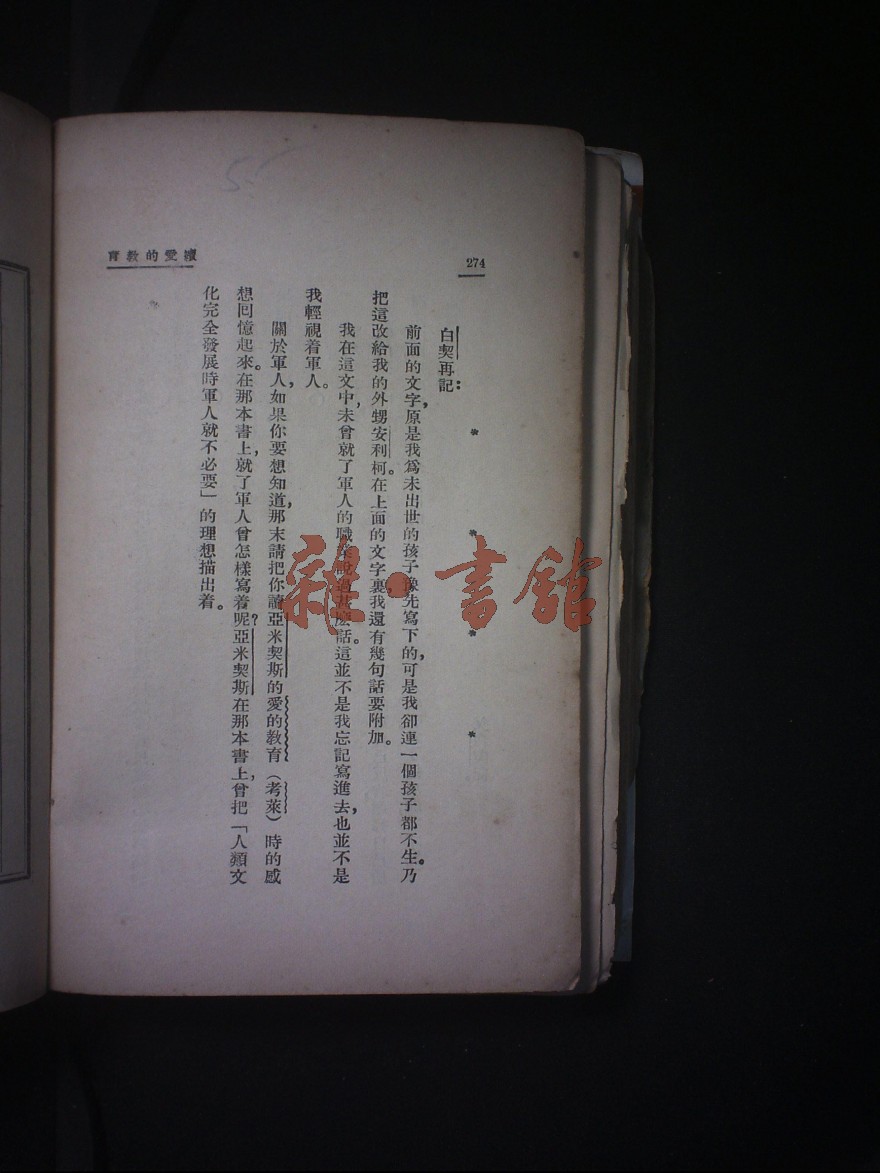 續愛的教育
274
白契再記：
前面的文字，原是我爲未出世的孩子像先寫下的，可是我卻連一個孩子都不生。乃
把這改給我的外甥安利柯。在上面的文字裏，我還有幾句話要附加。
我在這文中，未曾就了軍人的職業說過甚麽話。這並不是我忘記寫進去，也並不是
我輕視着軍人。
關於軍人，如果你要想知道，那末請把你讀亞米契斯的愛的教育（考萊）時的感
想回憶起來。在那本書上，就了軍人曾怎樣寫着呢？亞米契斯在那本書上，曾把「人類文
化完全發展時軍人就不必要」的理想描出着。
雜·書館